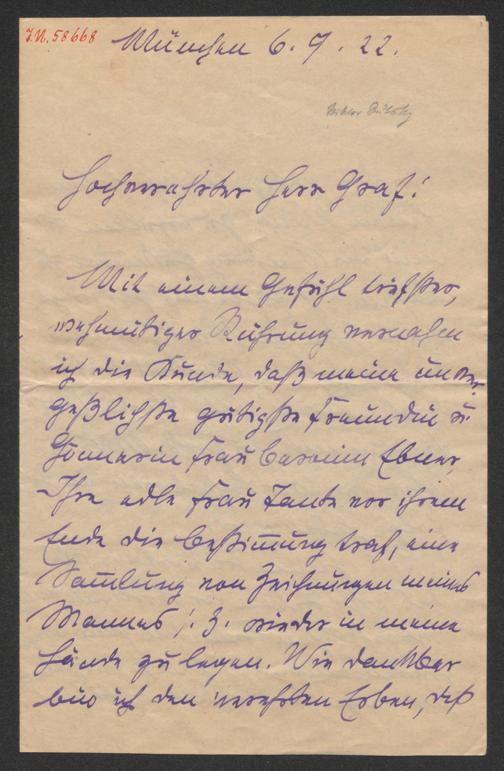 J.N. 58668
München 6. 9. 22.
Viktor Dubsky
Hochverehrter Herr Graf!
Mit einem Gefühl tiefster,
wehmütiger Rührung vernahm
ich die Kunde, daß meine unver-
geßlichste gütigste Freundin u.
Gönnerin Frau Baronin Ebner,
Ihre edle Frau Tante vor ihrem
Ende die Bestimmung traf, eine
Samlung von Zeichnungen meines
Mannes s. Z. wieder in meine
Hände zu legen. Wie dankbar
bin ich den verehrten Erben, daß